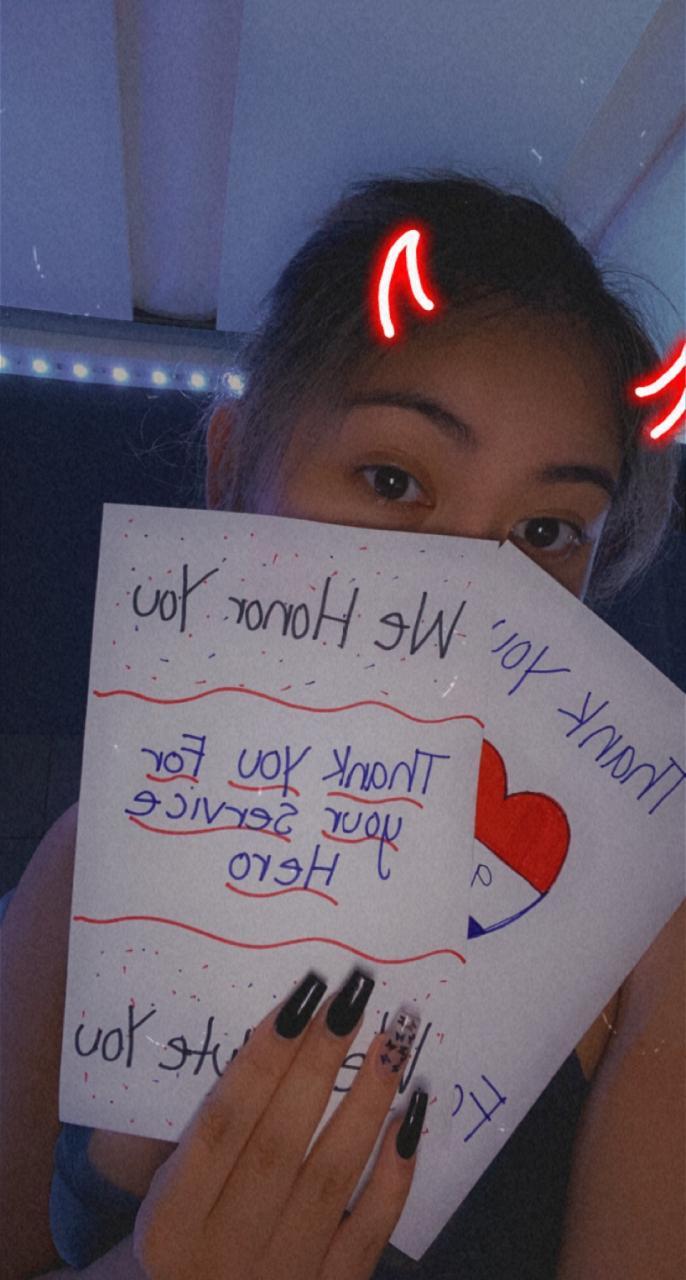 We Honor You
Thank You For
your Service
Hero
You
Thank You